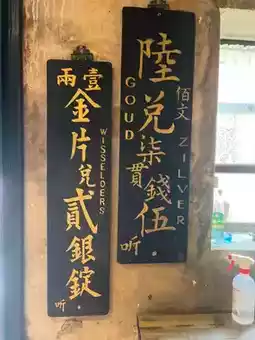 陸兌柒錢伍
佰文
貫
听
GOUD
ZILVER
壹兩
金片兌貳銀錠
听
WISSELDERS